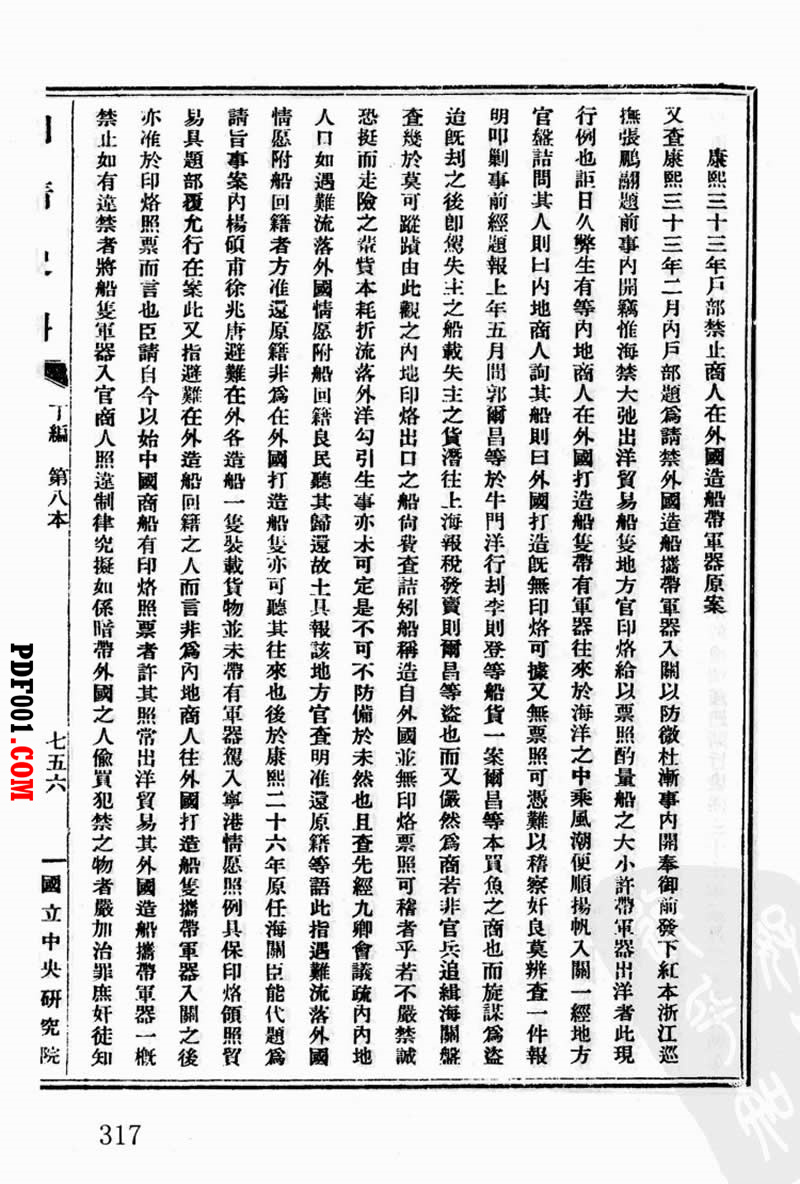 康熙三十三年戶部禁止商人在外國造船帶軍器原案
又查康熙三十三年二月內戶部題爲請禁外國造船攜帶軍器入關以防微杜漸事內開奉御前發下紅本浙江巡
撫張鵬翮題前事內開竊惟海禁大弛出洋貿易船隻地方官印烙給以票照酌量船之大小許帶軍器出洋者此現
行例也詎日久弊生有等內地商人在外國打造船隻帶有軍器往來於海洋之中乘風潮便順揚帆入關一經地方
官盤詰問其人則曰內地商人詢其船則曰外國打造旣無印烙可據又無票照可憑難以稽察奸良莫辨查一件報
明叩剿事前經題報上年五月間郭爾昌等於牛門洋行刦李則登等船貨一案爾昌等本買魚之商也而旋謀爲盜
迨旣刦之後卽駕失主之船載失主之貨潛往上海報稅發賣則爾昌等盜也而又儼然爲商若非官兵追緝海關盤
查幾於莫可蹤蹟由此觀之內地印烙出口之船尙費查詰矧船稱造自外國並無印烙票照可稽者乎若不嚴禁誠
恐挺而走險之輩貲本耗折流落外洋勾引生事亦未可定是不可不防備於未然也且查先經九卿會議疏內內地
人口如遇難流落外國情愿附船回籍良民聽其歸還故土具報該地方官查明准還原籍等語此指遇難流落外國
情愿附船回籍者方准還原籍非爲在外國打造船隻亦可聽其往來也後於康熙二十六年原任海關臣能代題爲
請旨事案內楊碩甫徐兆唐避難在外各造船一隻裝載貨物並未帶有軍器駕入寧港情愿照例具保印烙領照貿
易具題部覆允行在案此又指避難在外造船回籍之人而言非爲內地商人往外國打造船隻攜帶軍器入關之後
亦准於印烙照票而言也臣請自今以始中國商船有印烙照票者許其照常出洋貿易其外國造船攜帶軍器一概
禁止如有違禁者將船隻軍器入官商人照違制律究擬如係暗帶外國之人偷買犯禁之物者嚴加治罪庶奸徒知
丁編 第八本
七五六
國立中央研究院
317
PDF001.COM